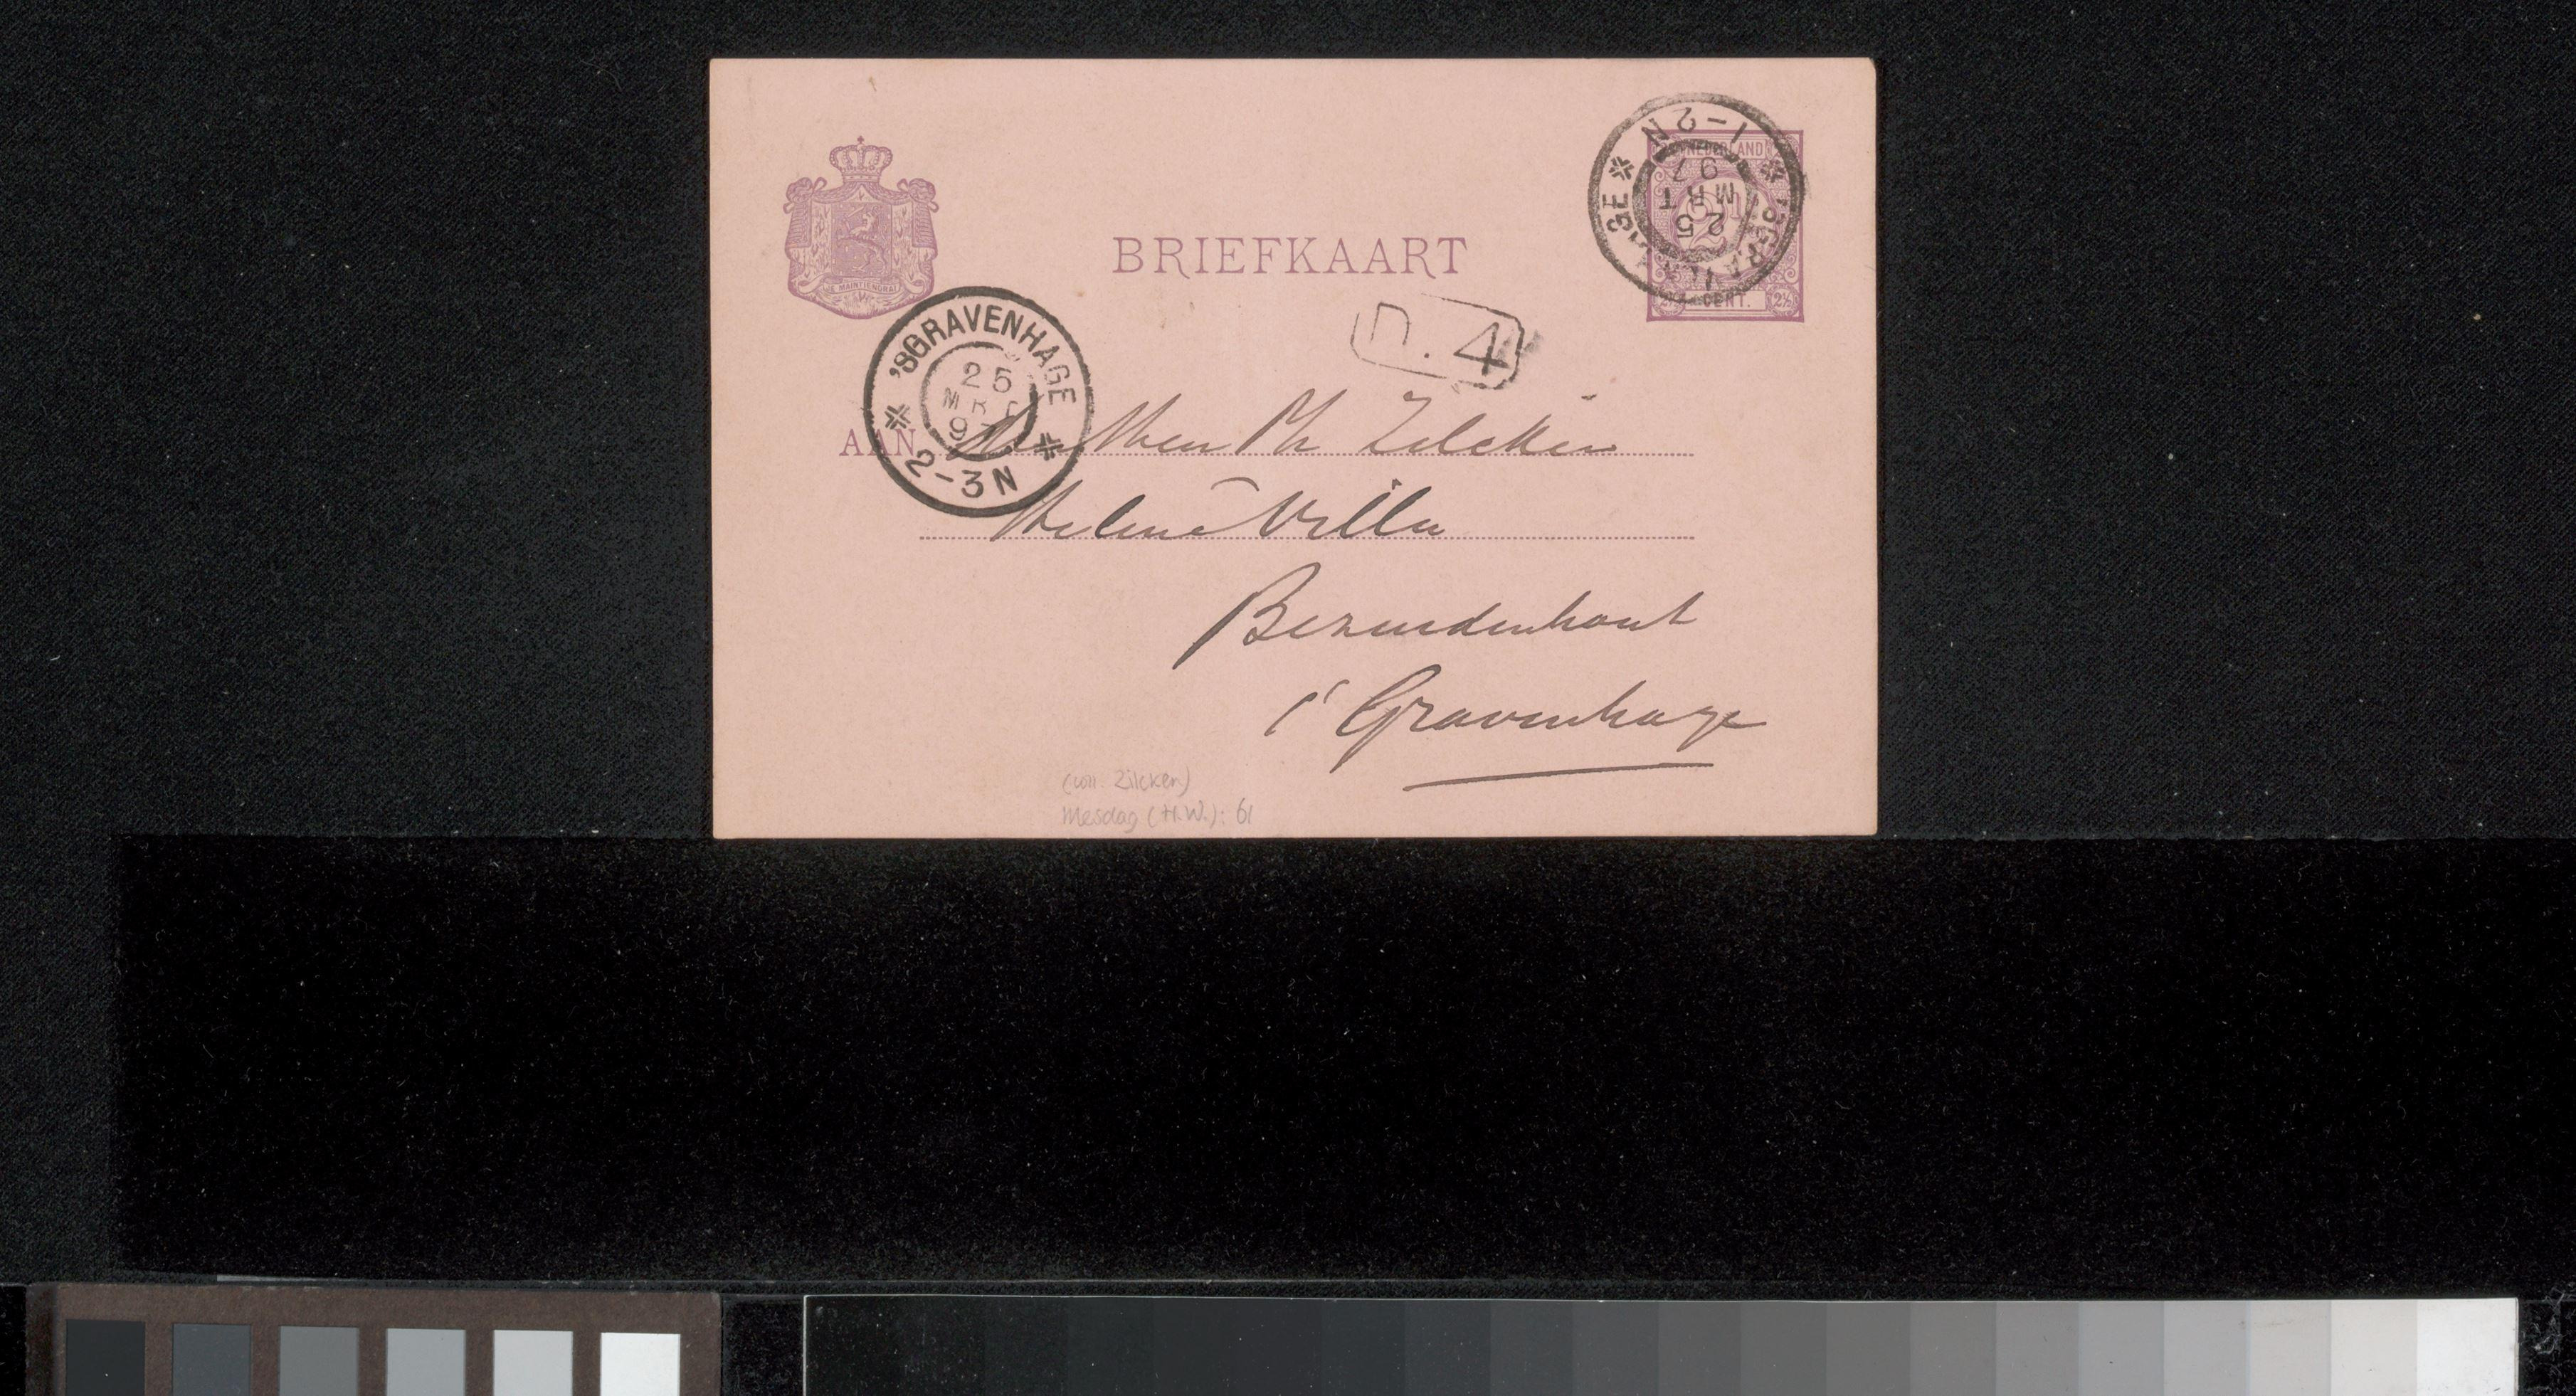 JE MAINTIENDRAI
BRIEFKAART
NEDERLAND
2½ CENT. 2½
'SGRAVENHAGE
1-2N
25
MRT
97
'SGRAVENHAGE
25
MRT
97
2-3N
n. 4
AAN den Heer Ph Zilcken
Helene Villa
Bezuidenhout
s' Gravenhage
(coll. Zilcken)
Mesdag (H.W.): 61